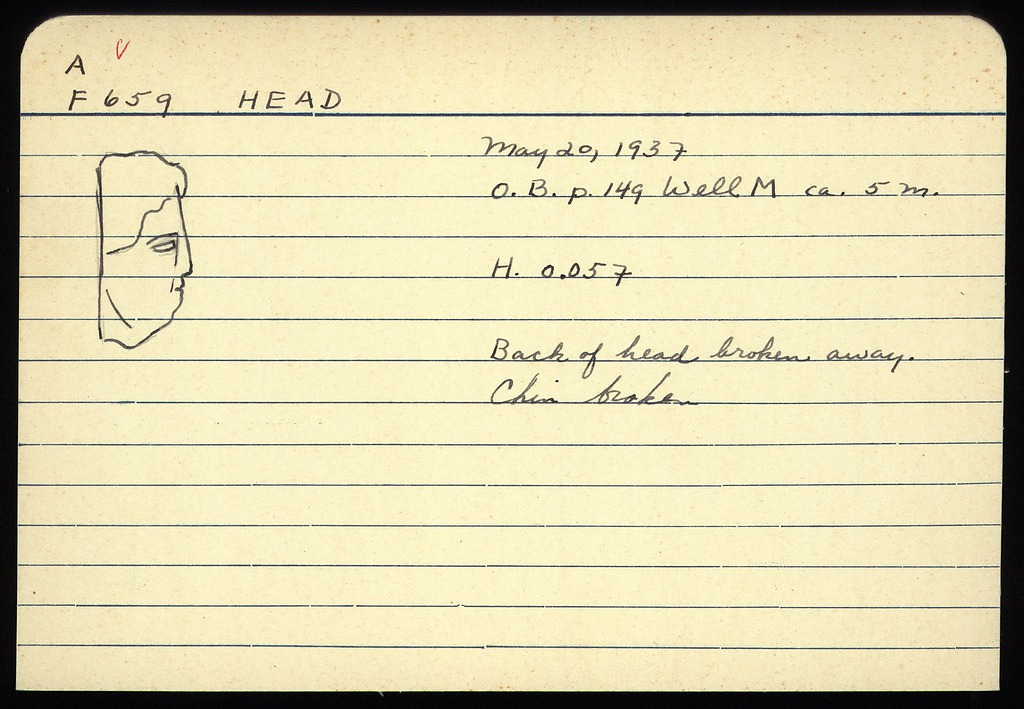 A
F 659 HEAD
May 20, 1937
O. B. p. 149 Well M ca. 5 m.
H. 0.057
Back of head broken away.
Chin broken